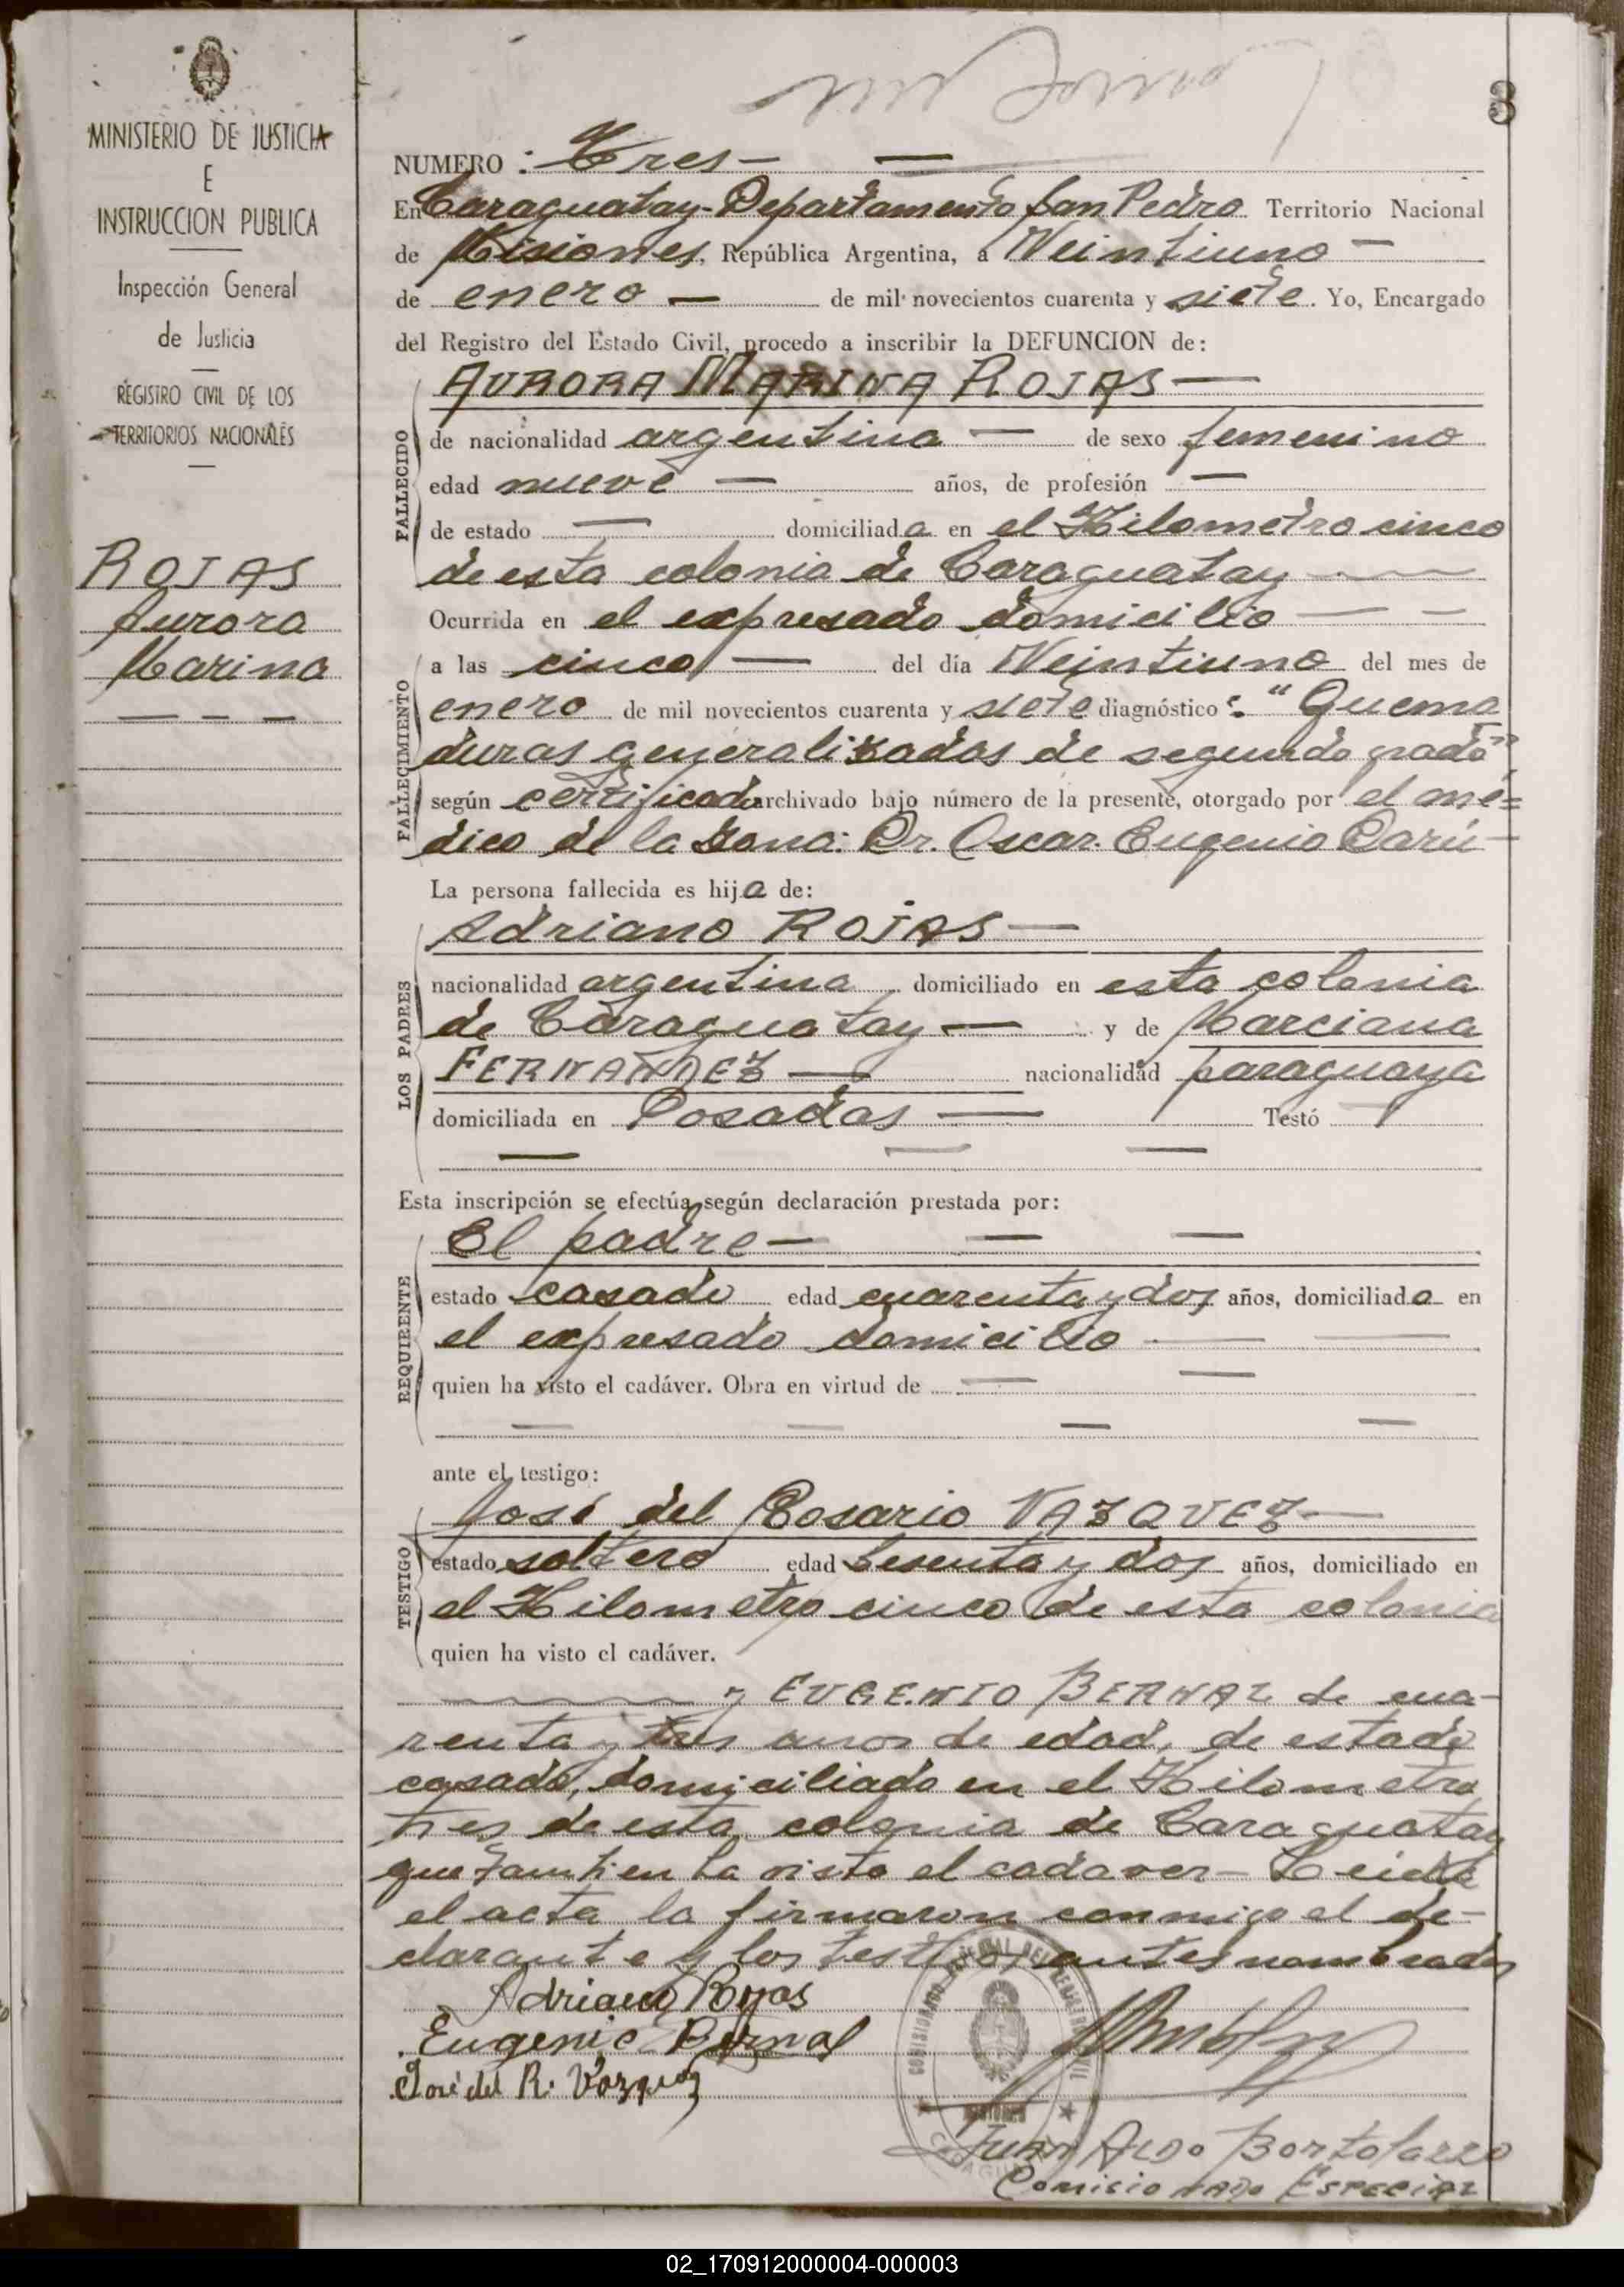 3
MINISTERIO DE JUSTICIA
E
INSTRUCCION PUBLICA
Inspección General
de Justicia
REGISTRO CIVIL DE LOS
TERRITORIOS NACIONALES
ROJAS
Aurora
Marina
NUMERO : Tres —
En Caraguatay - Departamento San Pedro Territorio Nacional
de Misiones, República Argentina, a Veintiuno —
de enero — de mil novecientos cuarenta y siete. Yo, Encargado
del Registro del Estado Civil, procedo a inscribir la DEFUNCION de:
AURORA MARINA ROJAS —
FALLECIDO
de nacionalidad argentina — de sexo femenino
edad nueve — años, de profesión —
de estado — domiciliada en el Kilometro cinco
de esta colonia de Caraguatay —
Ocurrida en el expresado domicilio — —
FALLECIMIENTO
a las cinco — del día Veintiuno del mes de
enero de mil novecientos cuarenta y siete diagnóstico: "Quema
duras generalizadas de segundo grado"
según certificado archivado bajo número de la presente, otorgado por el mé=
dico de la zona: Dr. Oscar Eugenio Darú —
La persona fallecida es hija de:
LOS PADRES
Adriano ROJAS —
nacionalidad argentina domiciliado en esta colonia
de Caraguatay — y de Marciana
FERNANDEZ — nacionalidad paraguaya
domiciliada en Posadas — Testó —
— — —
Esta inscripción se efectúa según declaración prestada por:
REQUIRENTE
El padre — — —
estado casado edad cuarenta y dos años, domiciliado en
el expresado domicilio — —
quien ha visto el cadáver. Obra en virtud de — —
— — — —
ante el testigo:
TESTIGO
José del Rosario VAZQUEZ —
estado soltero edad sesenta y dos años, domiciliado en
el Kilometro cinco de esta colonia
quien ha visto el cadáver.
y EUGENIO BERNAL de cua-
renta y tres anos de edad, de estado
casado, domiciliado en el Kilometro
tres de esta colonia de Caraguatay
que tambien ha visto el cadaver - Leida
el acta, la firmaron conmigo el de-
clarante y los testigos antes nombrados
Adriano Rojas
Eugenio Bernal
José del R. Vazquez
Juan Aldo Bortolazzo
Comisionado Especial
02_170912000004-000003